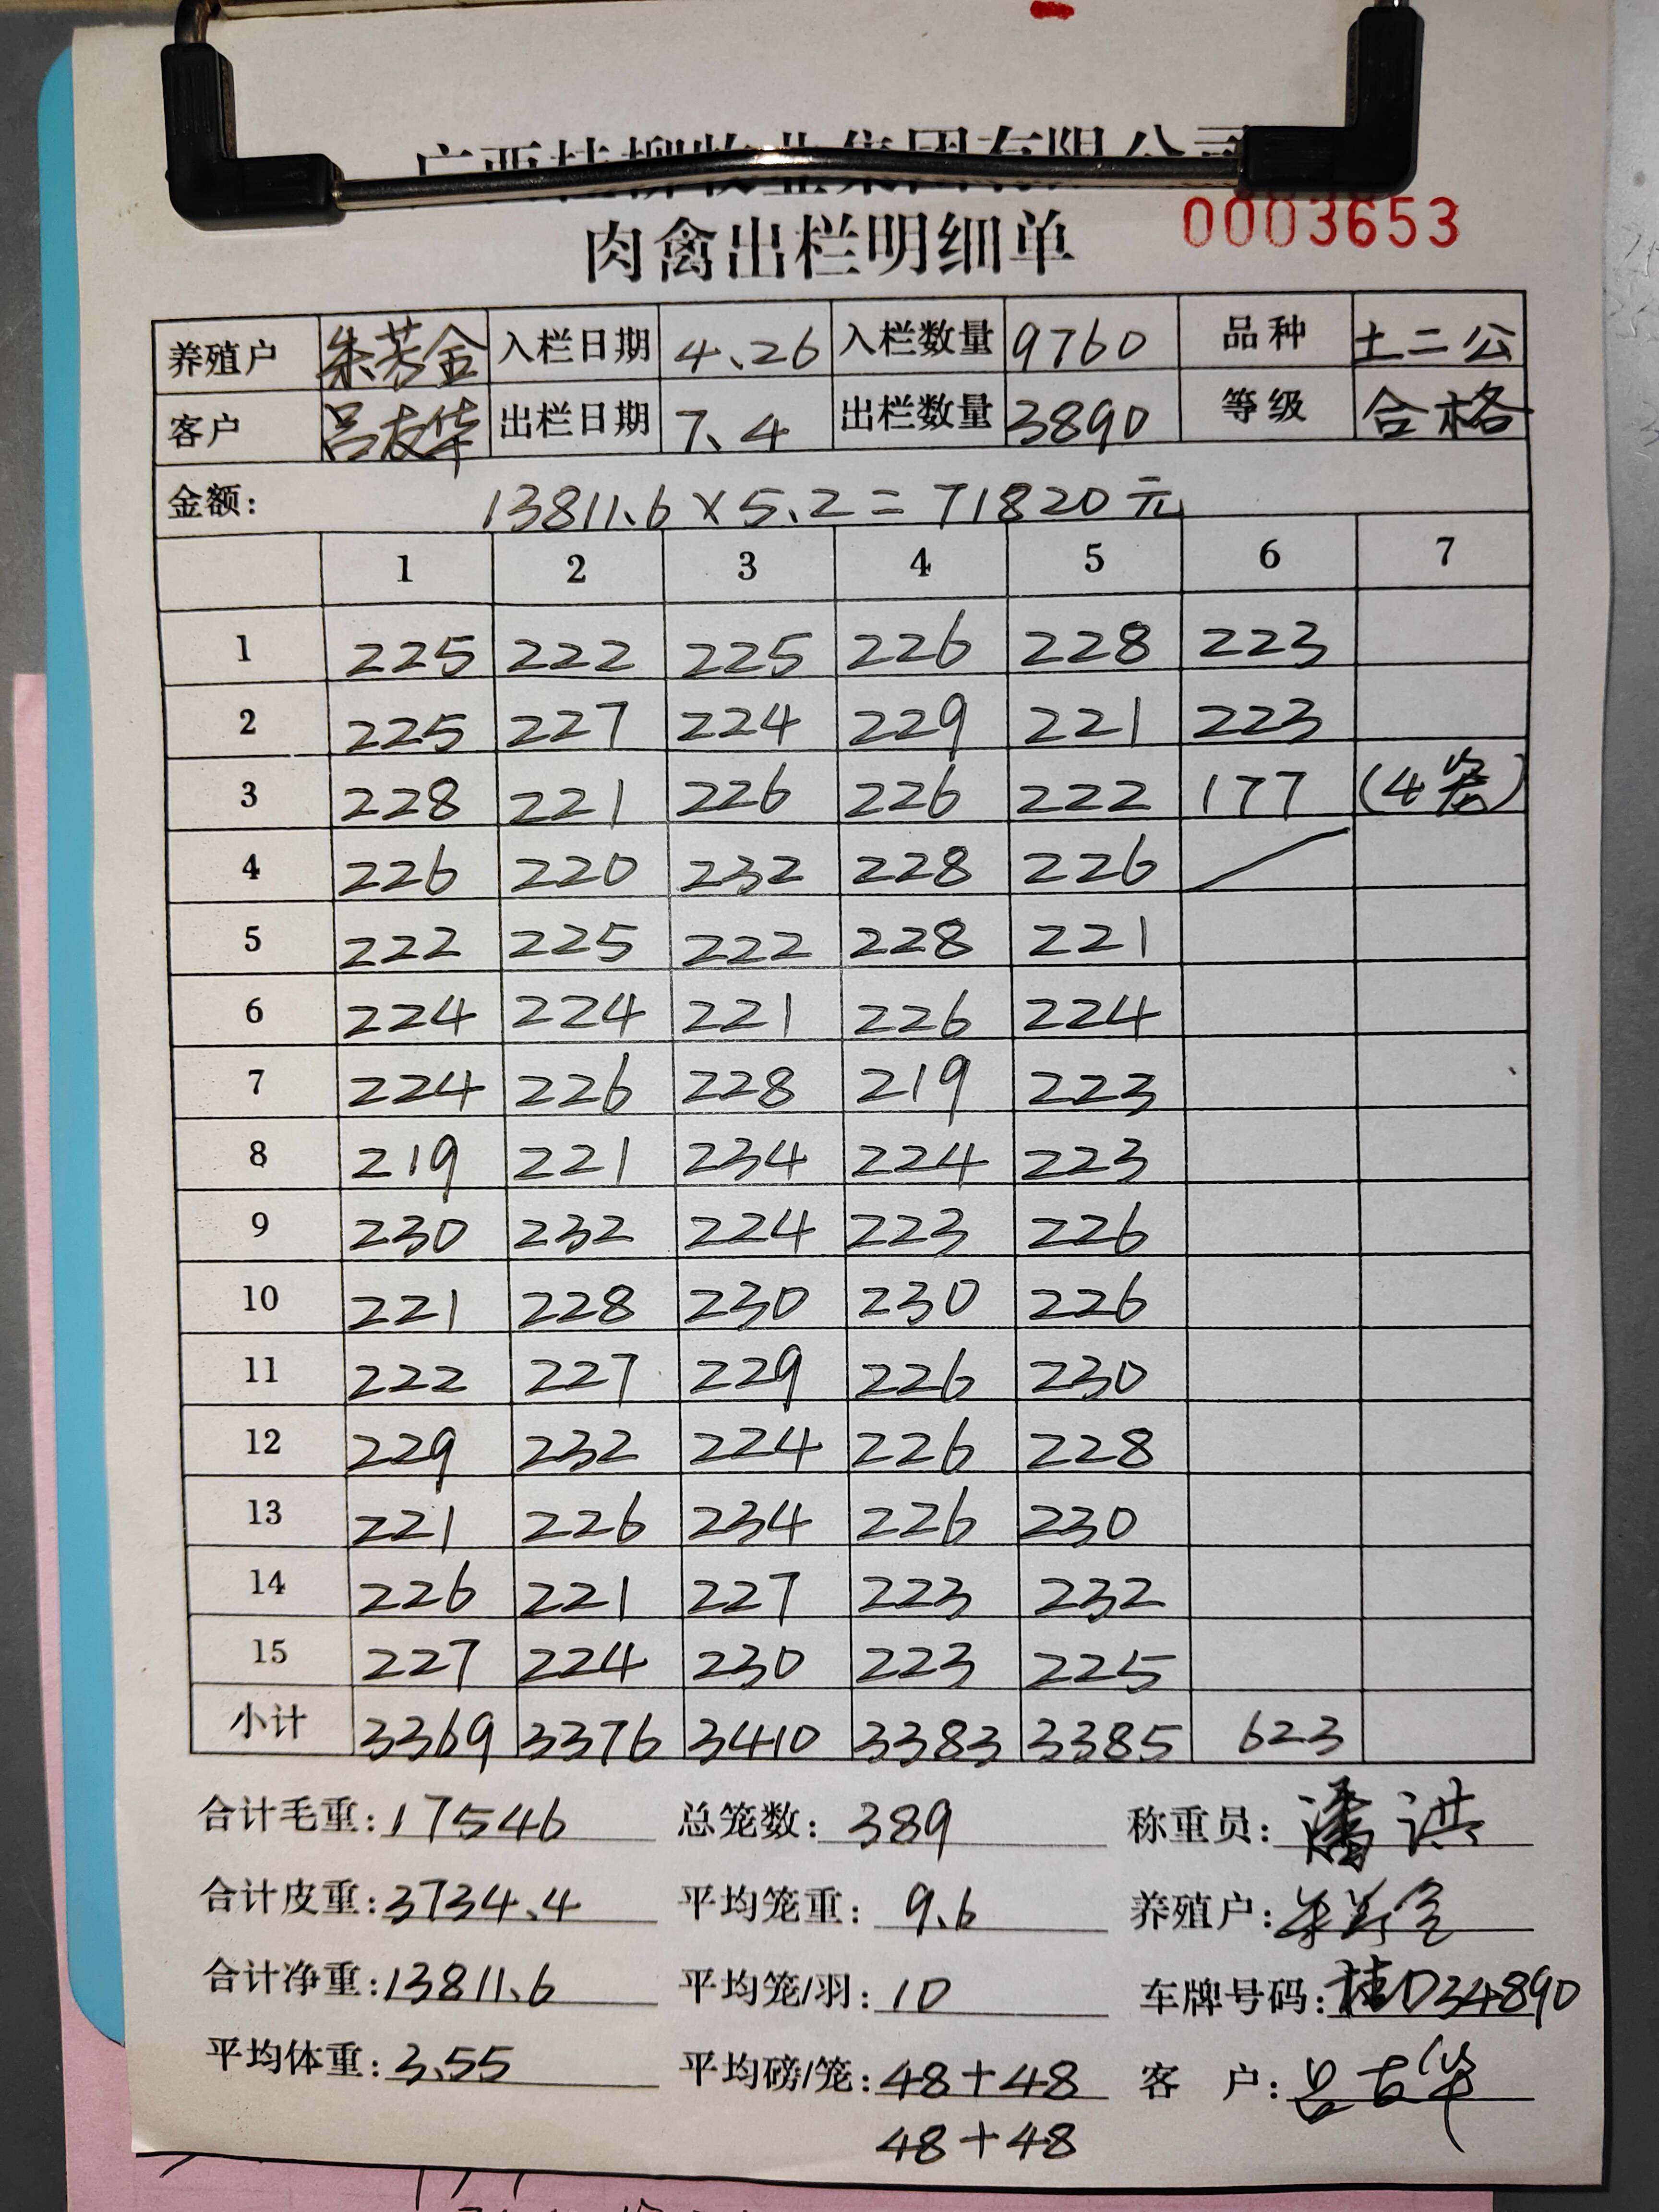 广西桂柳牧业集团有限公司
肉禽出栏明细单 0003653
养殖户 朱芳金 入栏日期 4、26 入栏数量 9760 品种 土二公
客户 吕友华 出栏日期 7、4 出栏数量 3890 等级 合格
金额: 13811、6×5、2=71820元
1 2 3 4 5 6 7
1 225 222 225 226 228 223
2 225 227 224 229 221 223
3 228 221 226 226 222 177 (4笼)
4 226 220 232 228 226
5 222 225 222 228 221
6 224 224 221 226 224
7 224 226 228 219 223
8 219 221 234 224 223
9 230 232 224 223 226
10 221 228 230 230 226
11 222 227 229 226 230
12 229 232 224 226 228
13 221 226 234 226 230
14 226 221 227 223 232
15 227 224 230 223 225
小计 3369 3376 3410 3383 3385 623
合计毛重:17546 总笼数:389 称重员:潘洪
合计皮重:3734、4 平均笼重:9、6 养殖户:朱芳金
合计净重:13811、6 平均笼/羽:10 车牌号码:桂D34890
平均体重:3、55 平均磅/笼:48+48 客 户:吕友华
48+48